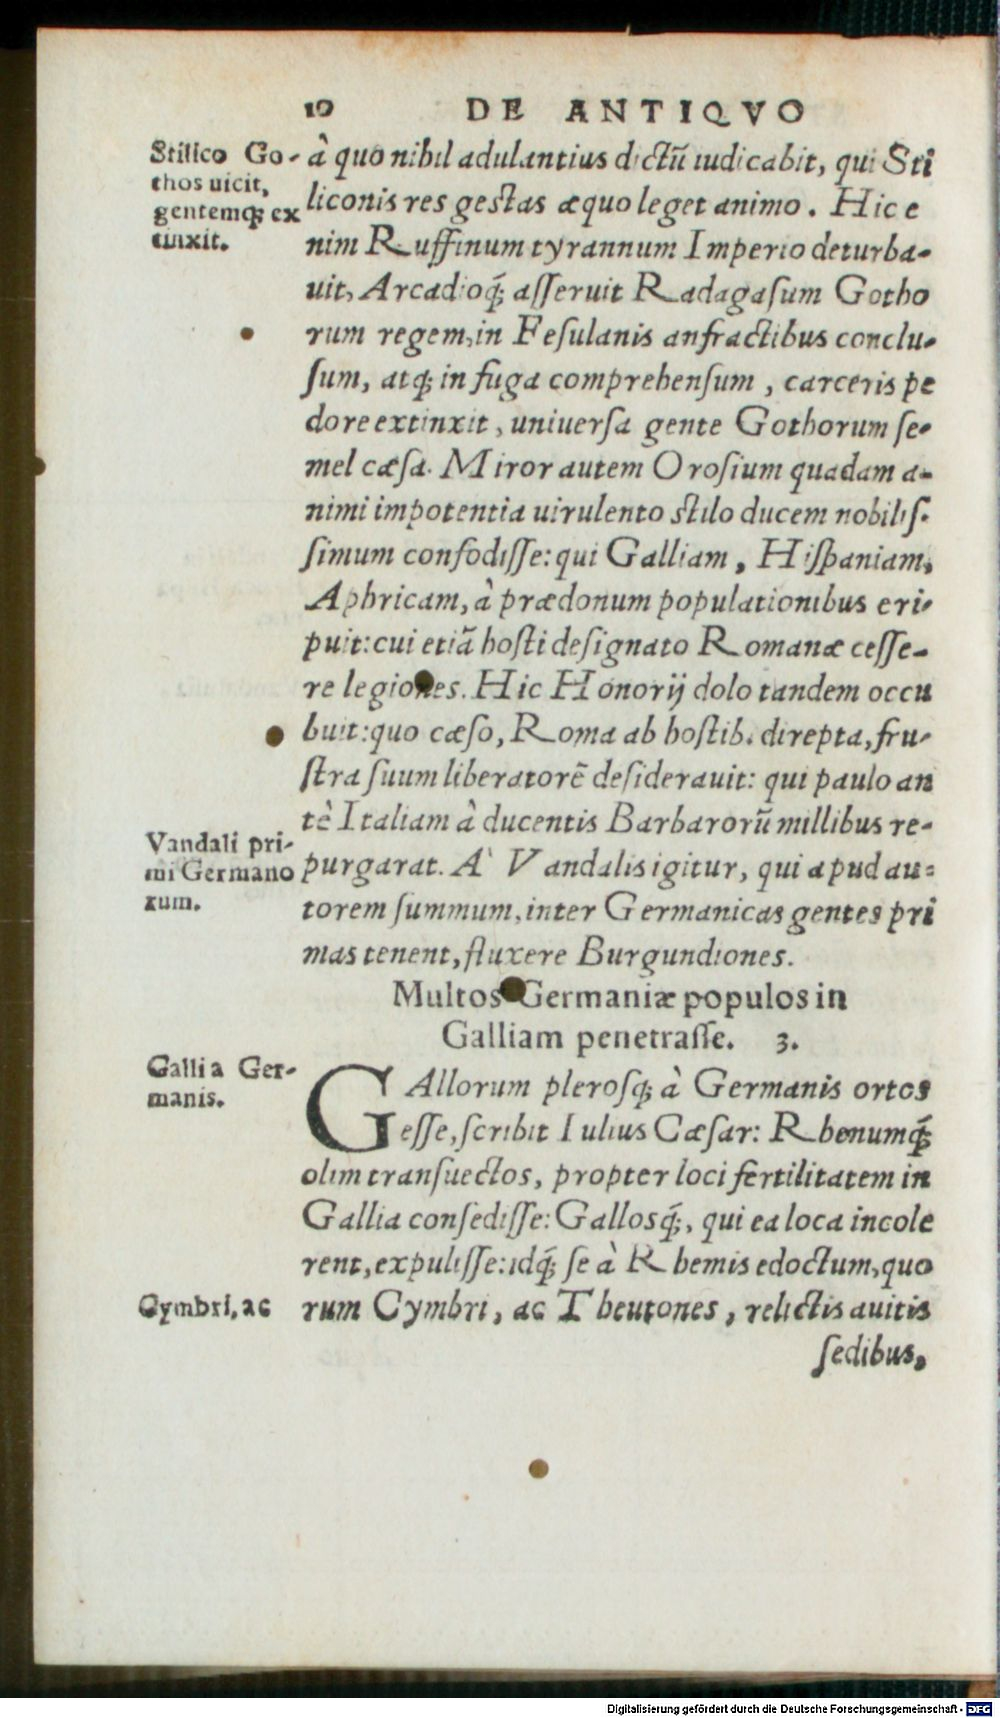 10 DE ANTIQVO
Stilico Go-
thos uicit,
gentemq́; ex
tinxit.
à quo nihil adulantius dictũ iudicabit, qui Sti
liconis res gestas æquo leget animo. Hic e
nim Ruffinum tyrannum Imperio deturba-
uit, Arcadioq́; asseruit Radagasum Gotho
rum regem, in Fesulanis anfractibus conclu-
sum, atq; in fuga comprehensum, carceris pe
dore extinxit, uniuersa gente Gothorum se-
mel cæsa. Miror autem Orosium quadam a-
nimi impotentia uirulento stilo ducem nobilis-
simum confodisse: qui Galliam, Hispaniam,
Aphricam, à prædonum populationibus eri-
puit: cui etiã hosti designato Romanæ cesse-
re legiones. Hic Honorij dolo tandem occu
buit: quo cæso, Roma ab hostib. direpta, fru-
stra suum liberatorẽ desiderauit: qui paulo an
tè Italiam à ducentis Barbarorũ millibus re-
Vandali pri-
mi Germano
rum.
purgarat. A` Vandalis igitur, qui apud au-
torem summum, inter Germanicas gentes pri
mas tenent, fluxere Burgundiones.
Multos Germaniæ populos in
Galliam penetrasse. 3.
Galli a Ger-
manis.
GAllorum plerosq; à Germanis ortos
esse, scribit Iulius Cæsar: Rhenumq́;
olim transuectos, propter loci fertilitatem in
Gallia consedisse: Gallosq́;, qui ea loca incole
rent, expulisse: idq́; se à Rhemis edoctum, quo
Cymbri, ac
rum Cymbri, ac Theutones, relictis auitis
sedibus,
Digitalisierung gefördert durch die Deutsche Forschungsgemeinschaft - DFG